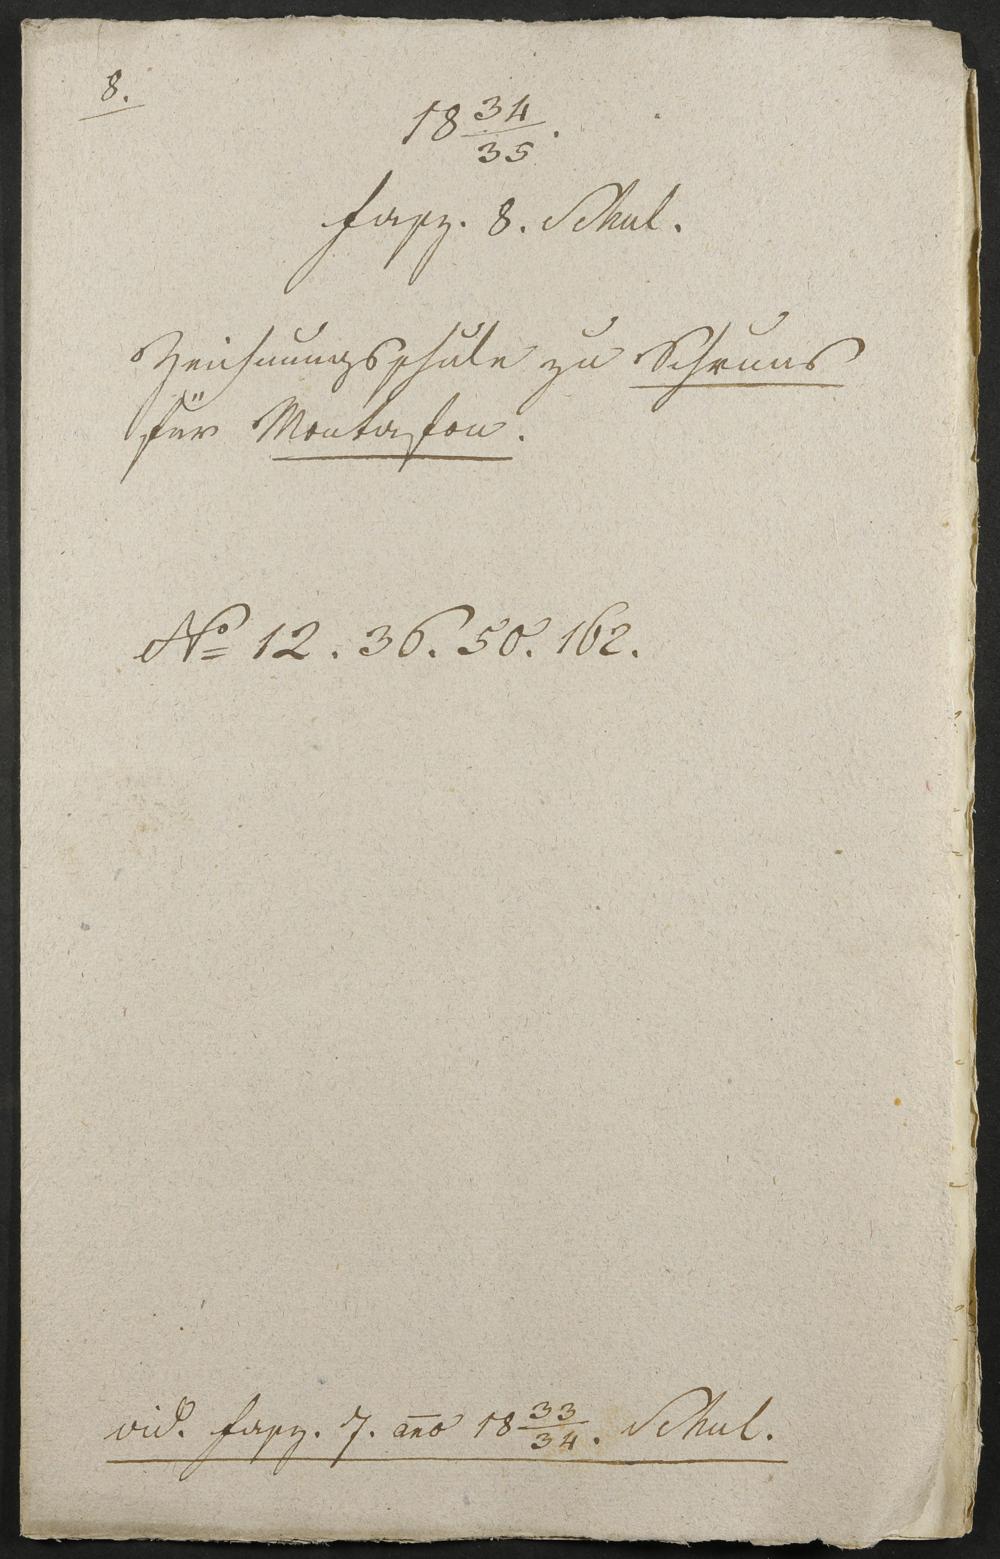 8.
18 34/35.
Fasz. 8. Schul.
Zeichnungsschule zu Schruns
für Montafon.
No 12. 36. 50. 162.
vid. Fasz. 7. ano 18 33/34. Schul.